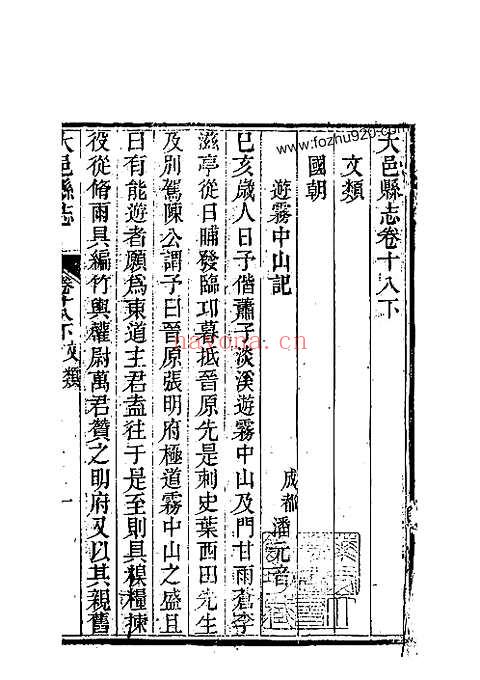 大邑縣志卷十八下
文類
國朝
遊霧中山記
成都 潘元音
己亥歲人日予偕蕭子淡溪遊霧中山及門甘雨蒼李
滋亭從日晡發臨邛暮抵晉原先是刺史葉西田先生
及別駕陳公謂予曰晉原張明府極道霧中山之盛且
曰有能遊者願為東道主君盍往于是至則具糗糧揀
役從脩雨具編竹輿權尉萬君贊之明府又以其親舊
大邑縣志
卷十八下 文類
一
www.fozhu920.com
nayona.cn